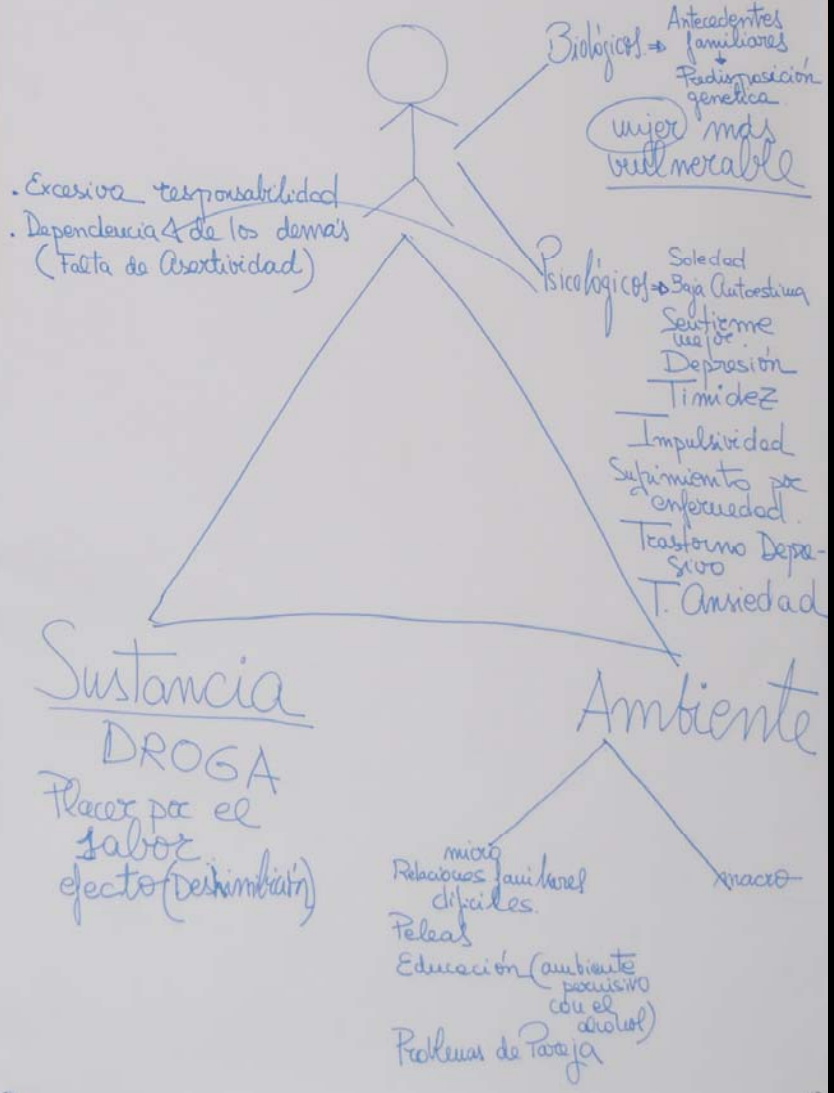 Biológicos ⇒ Antecedentes
familiares
Predisposición
genética
mujer más
vulnerable
. Excesiva responsabilidad
. Dependencia de los demás
(Falta de Asertividad)
Psicológicos ⇒ Soledad
Baja Autoestima
Sentirme
mejor.
Depresión
Timidez
Impulsividad
Sufrimiento por
enfermedad.
Trastorno Depre-
sivo
T. Ansiedad
Sustancia
DROGA
Placer por el
sabor
efecto (Deshinibición)
Ambiente
micro
Relaciones familiares
difíciles.
Peleas
Educación (ambiente
permisivo
con el
alcohol)
Problemas de Pareja
macro